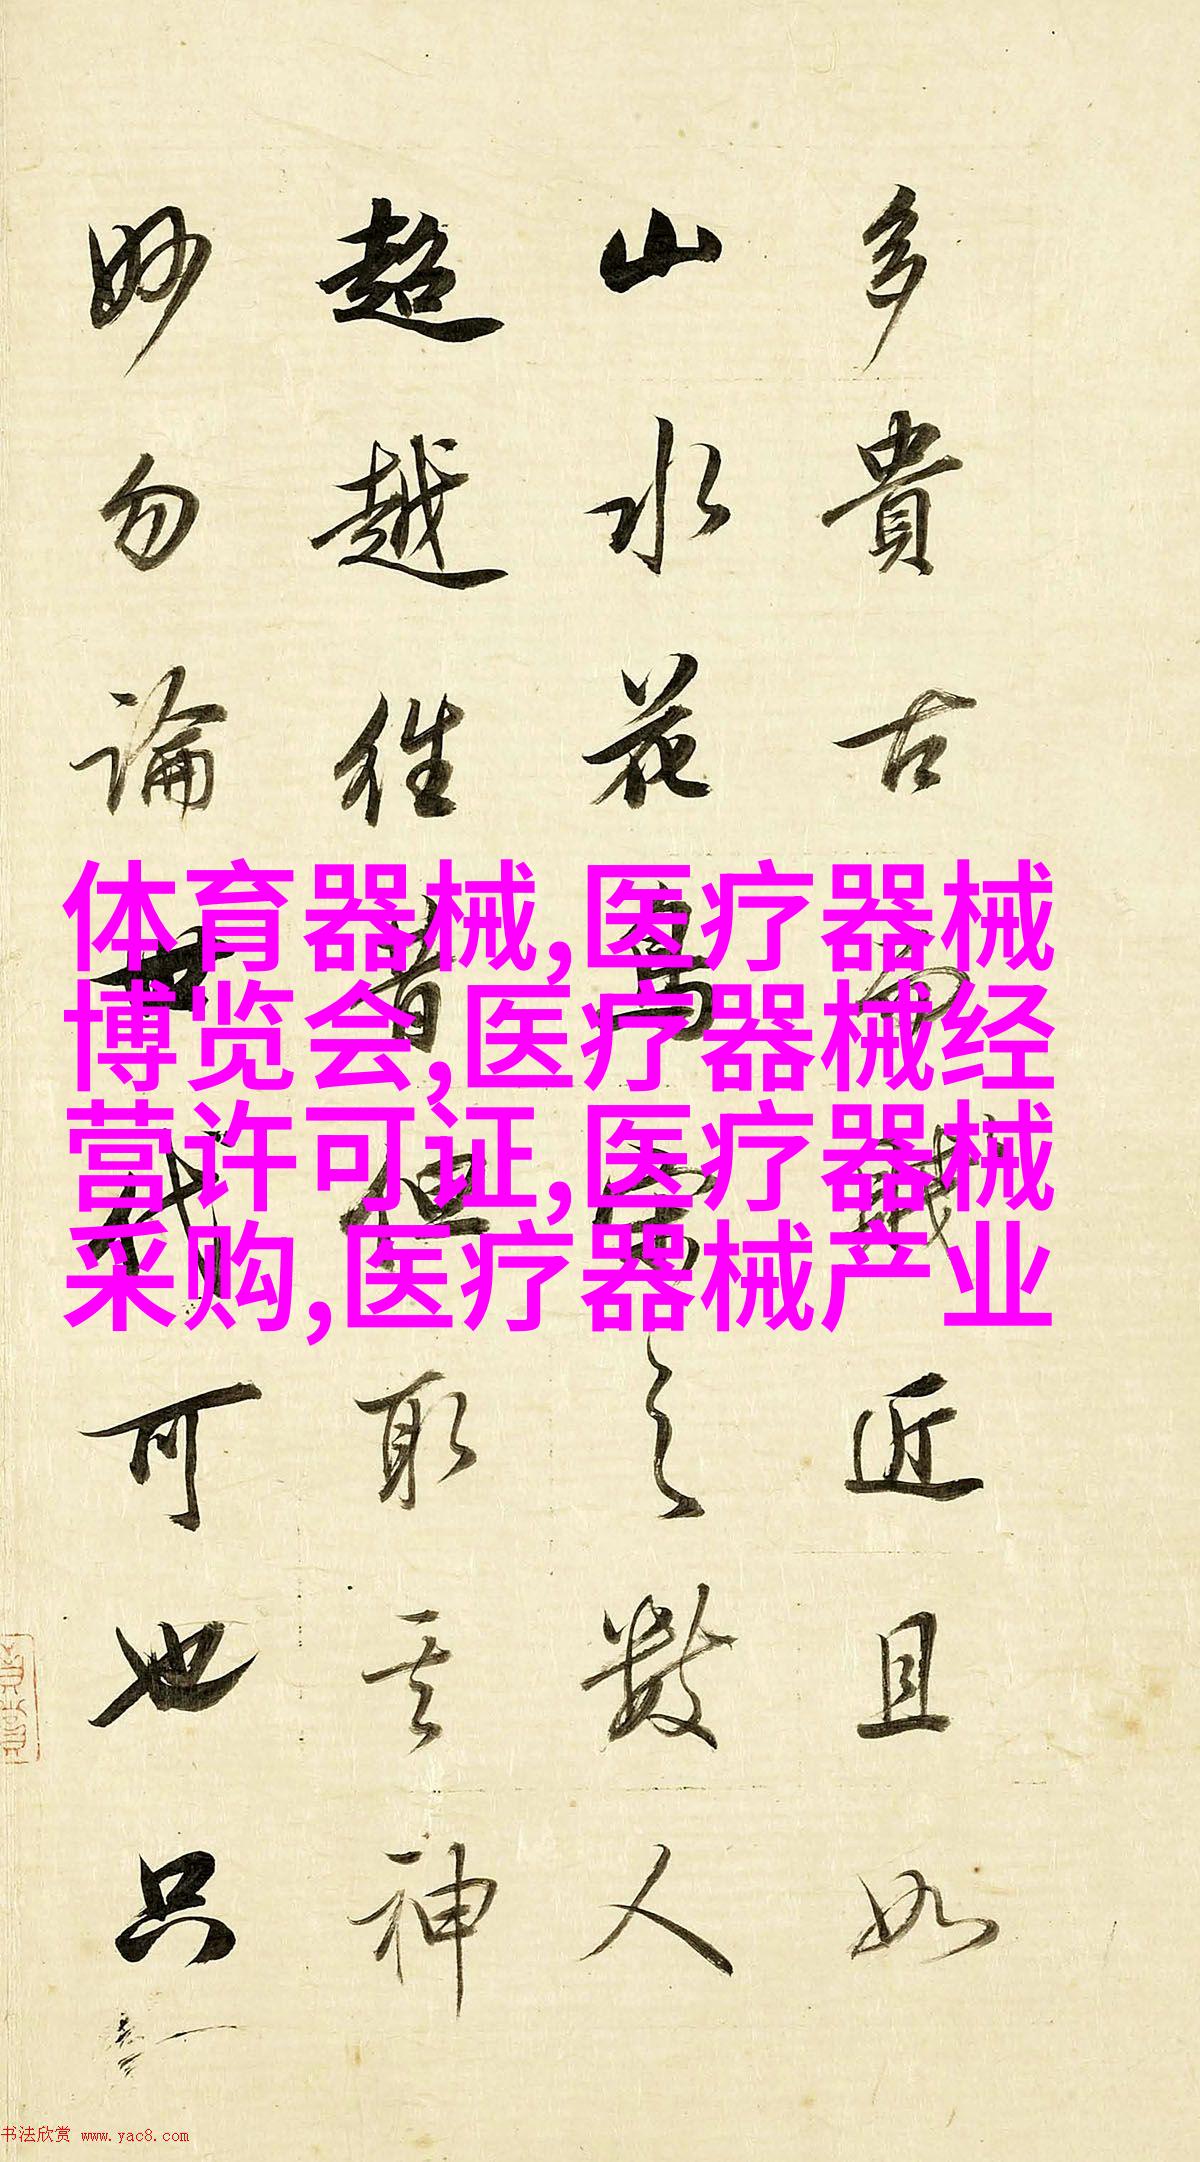 多貴古而賤近且如
山水花鳥之數人
超越往昔但取其神
妙勿論世代可也只
体育器械,医疗器械
博览会,医疗器械经
营许可证,医疗器械
采购,医疗器械产业
书法欣赏 www.yac8.com